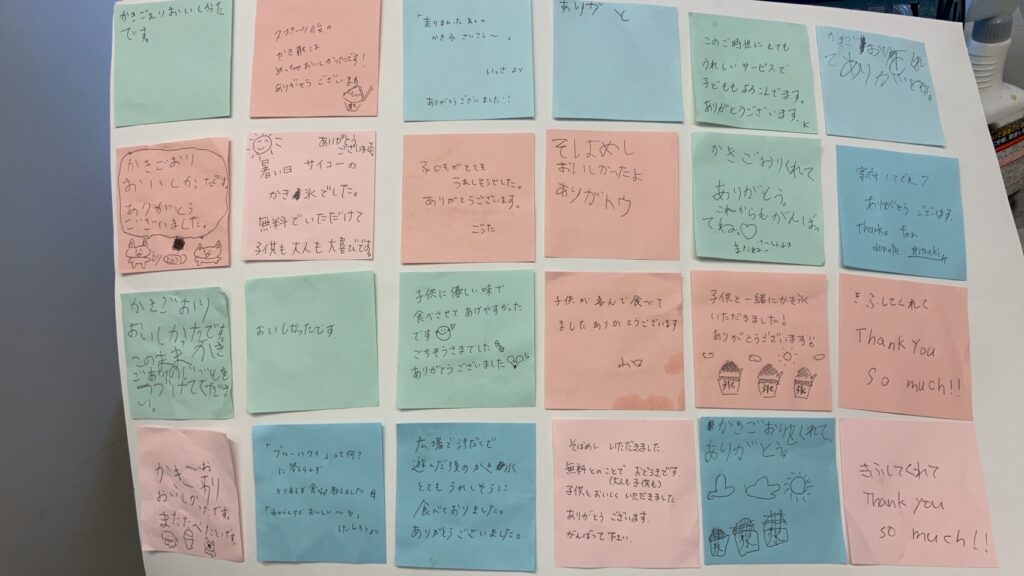 かきごおりおいしかった
です。
スポーツ後の
かき氷は
めっちゃおいしかったです!
ありがとう ございます
「走りまわったあとの
かき氷 さいこう〜」
いっさ より
ありがとうございました!!
ありが と
このご時世に とても
うれしい サービスで
子どももよろこんでます。
ありがとうございます。
かきごおり
てありがとです。
かきごおり
おいしかったです。
ありがとう
ございました。
by
ありがとう
ございました
暑い日 サイコーの
かき氷でした。
無料でいただけて
子供も大人も大喜びです。
子どもがとても
うれしそうでした。
ありがとうございます。
こうた
そばめし
おいしかったよ
ありがトウ
かきごおりくれて
ありがとう。
これからもがんばっ
てね。♡
またねー
寄付してくれて
ありがとう ございます.
Thanks for
donate
かきごおり
おいしかったです
このまま かき
ごおりのしごとを
つづけてください
い。
おいしかったです
子供に優しい味で
食べさせて あげやすかった
です
ごちそうさまでした
ありがとうございました
子供が喜んで食べて
ました ありがとうございます
山口
子供と一緒にかき氷
いただきました!
ありがとうございます!
氷 氷 氷
きふしてくれて
Thank You
So much!!
かきごおり
おいしかったです。
またたべたいです。
「ブルーハワイ」って何?
に答えられず
とりあえず食べ
「わからんけど おいしい〜」
けんしろうより
広場で汗だくで
遊んだ後のかき氷
とても うれしそうに
食べておりました。
ありがとうございました。
そばめし いただきました。
無料とのことで おどろきです。
(大人も子供も)
子供とおいしくいただきました
ありがとう ございます.
がんばって下さい.
かきごおりくれて、
ありがとう。
きふしてくれて
Thank you
so much!!